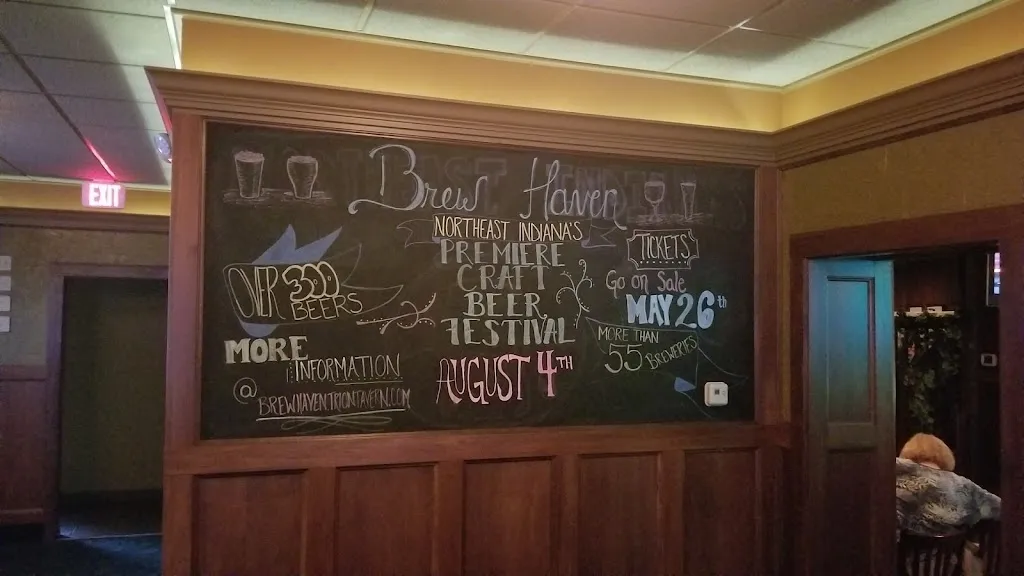 EXIT
Brew Haven
NORTHEAST INDIANA'S
PREMIERE
CRAFT
BEER
FESTIVAL
AUGUST 4TH
OVER 300
BEERS
MORE
INFORMATION
@
BREWHAVENTRIONTAVERN.COM
TICKETS
Go on Sale
MAY 26th
MORE THAN
55 BREWERIES